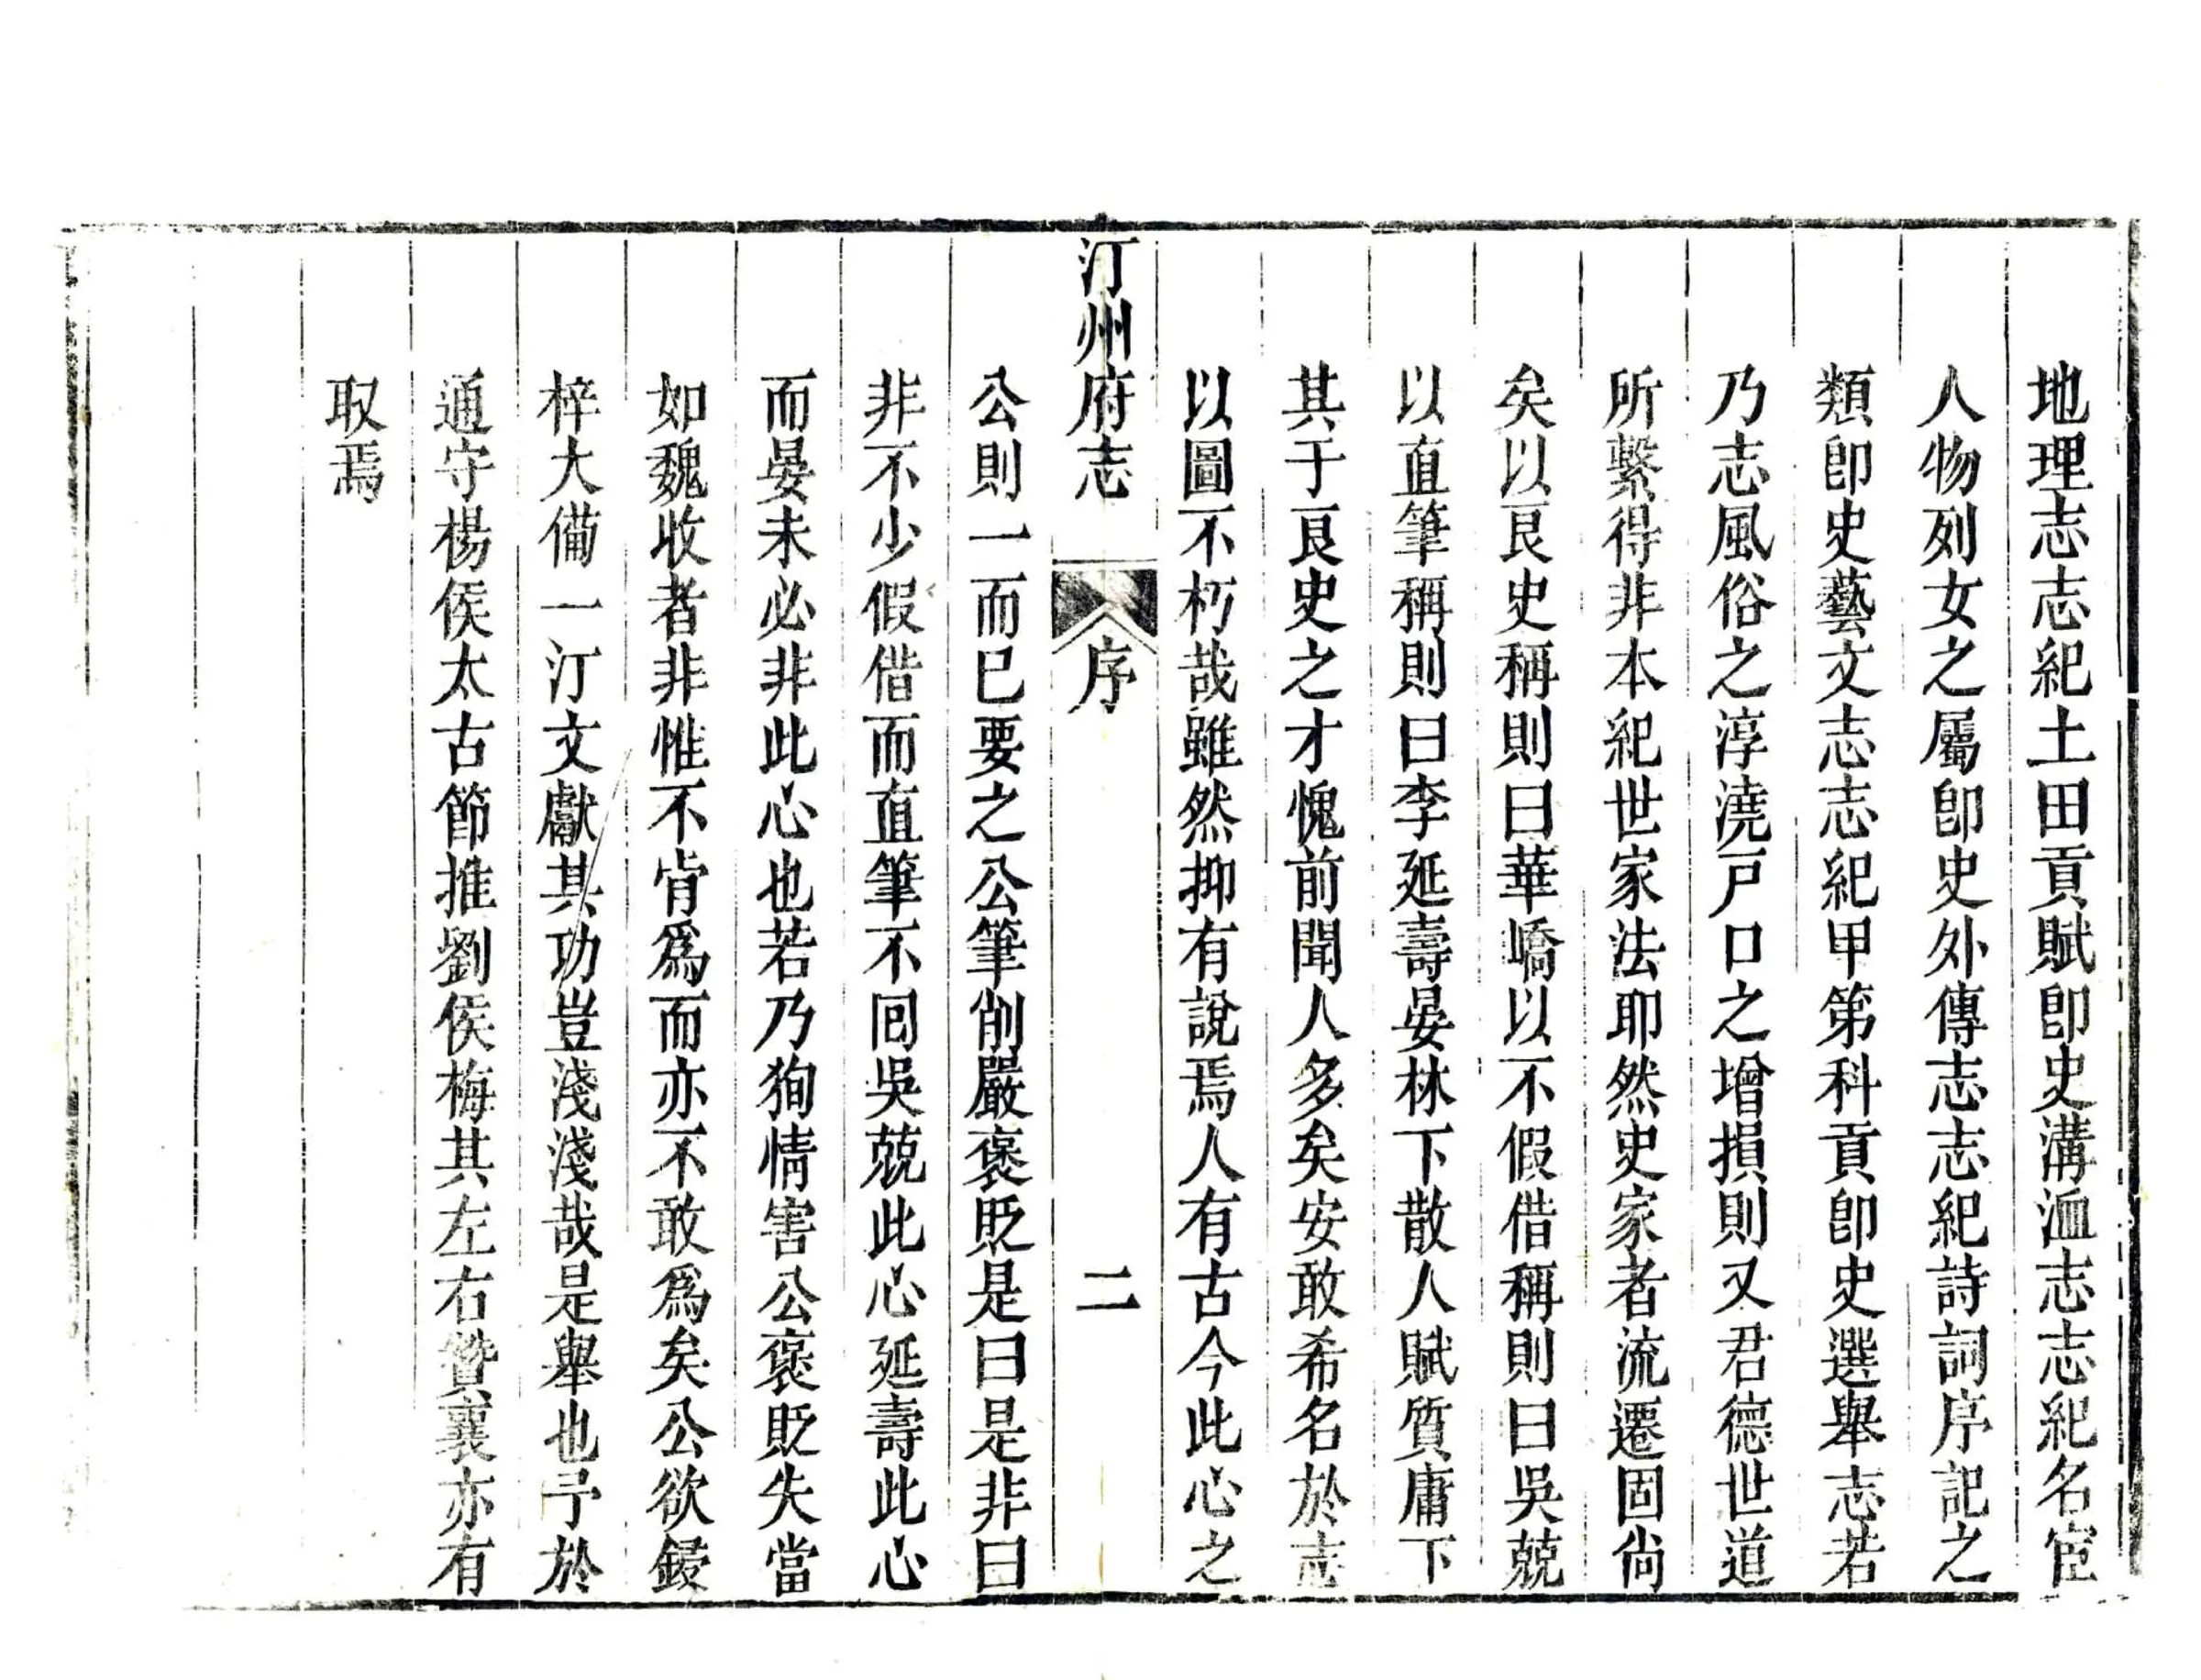 地理志志紀土田貢賦卽史溝洫志志紀名宦
人物列女之屬卽史外傳志志紀詩詞序記之
類卽史藝文志志紀甲第科貢卽史選舉志若
乃志風俗之淳澆戸口之增損則又君德世道
所繫得非本紀世家法耶然史家者流遷固尙
矣以良史稱則曰華嶠以不假借稱則曰吳兢
以直筆稱則曰李延壽晏林下散人賦質庸下
其于良史之才愧前聞人多矣安敢希名於志
以圖不朽哉雖然抑有說焉人有古今此心之
汀州府志 序 二
公則一而已要之公筆削嚴褒貶是曰是非曰
非不少假借而直筆不囘吳兢此心延壽此心
而晏未必非此心也若乃狥情害公褒貶失當
如魏收者非惟不肯爲而亦不敢爲矣公欲鋟
梓大僃一汀文獻其功豈淺淺哉是舉也予於
通守楊侯太古節推劉侯梅其左右贊襄亦有
取焉